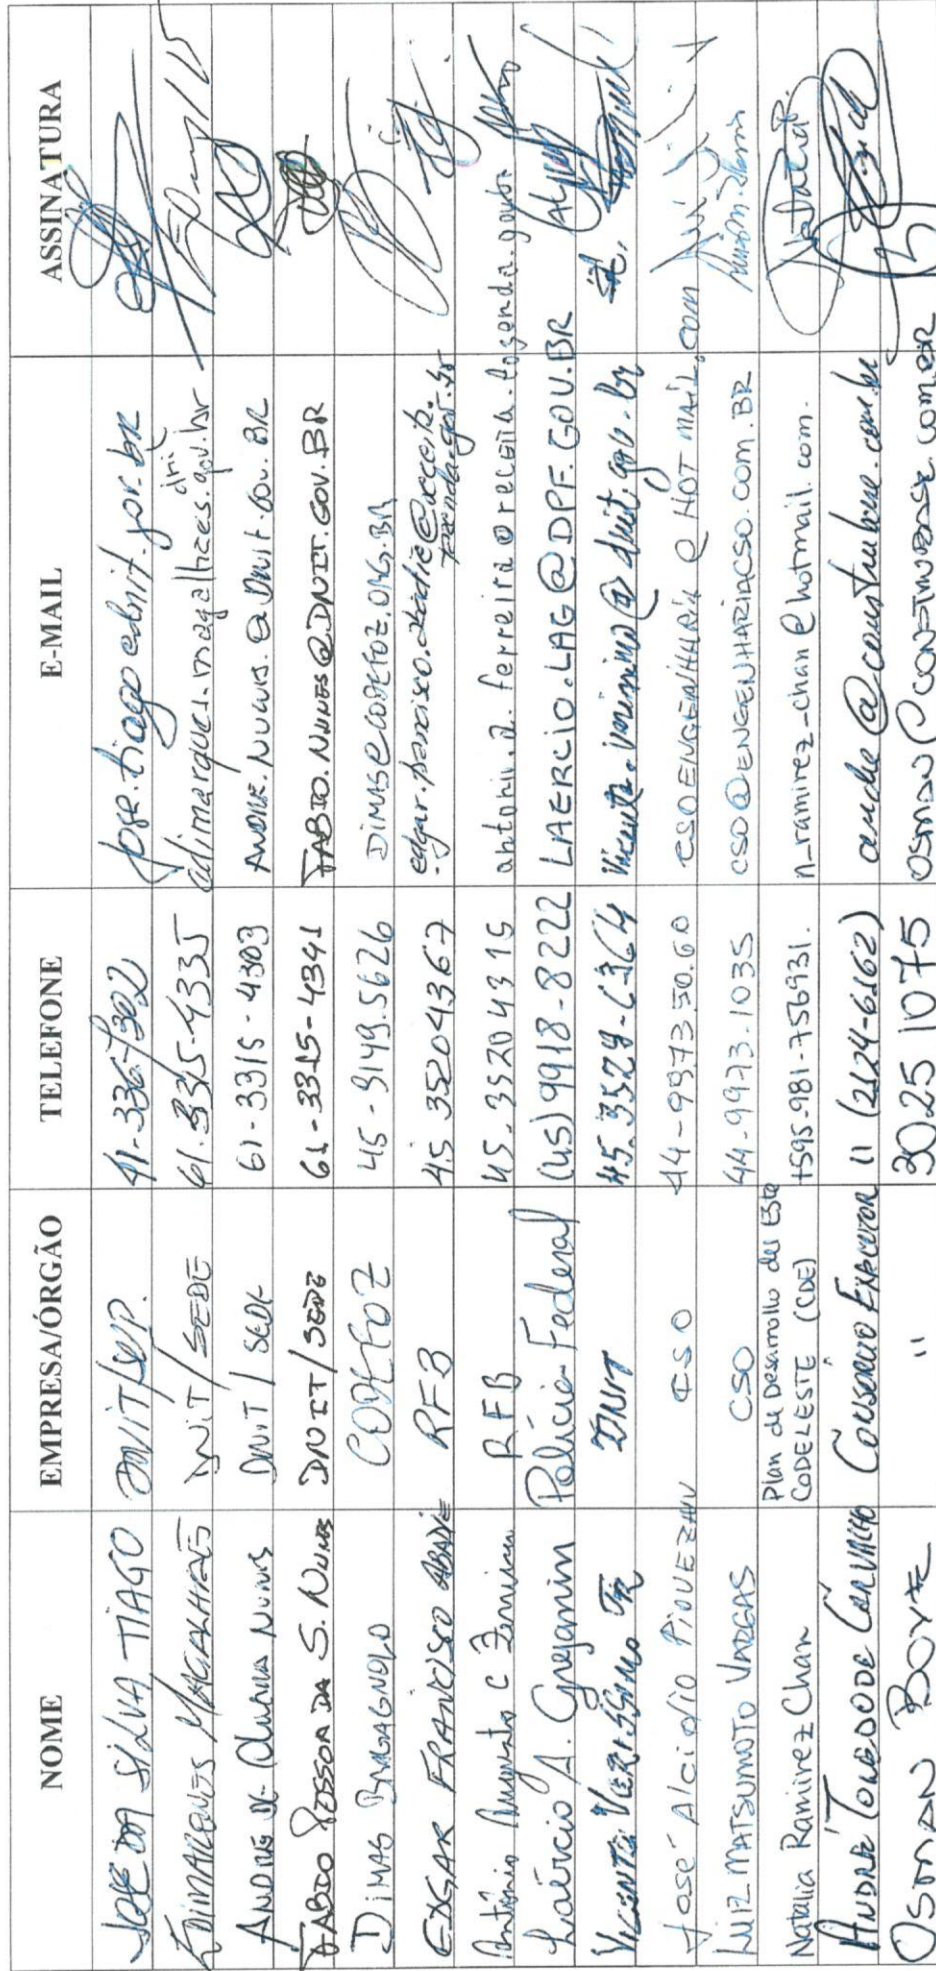 NOME EMPRESA/ÓRGÃO TELEFONE E-MAIL ASSINATURA
JOSE DA SILVA TIAGO DNIT/SUP. 41-3361-7302 jose.tiago@dnit.gov.br
EDIMARQUES MAGALHAES DNIT/SEDE 61.3315-4335 edimarques.magalhaes@dnit.gov.br
ANDRE DE Oliveira NUNES DNIT / SEDE 61-3315-4303 ANDRE.NUNES@DNIT.GOV.BR
FABIO PESSOA DA S. NUNES DNIT/SEDE 61-3315-4341 FABIO.NUNES@DNIT.GOV.BR
DIMAS BRAGAGNOLO CODEFOZ 45-9149.5626 DIMAS@CODEFOZ.ORG.BR
EDGAR FRANCISCO ABADIE RFB 45 35204367 edgar.francisco.abadie@receita.
fazenda.gov.br
Antônio Augusto C Ferreira RFB 45.35204315 antonio.a.ferreira@receita.fazenda.gov.br
Laércio A. Greganin Polícia Federal (45) 9918-8222 LAERCIO.LAG@DPF.GOV.BR
VICENTE VERISSIMO JR DNIT 45.3529-6364 vicente.verissimo@dnit.gov.br
José Alcidio CSO 44-9973.50.60 CSOENGENHARIA@HOTMAIL.COM
LUIZ MATSUMOTO VARGAS CSO 44-9973-1035 CSO@ENGENHARIACSO.COM.BR
Natalia Ramirez Chan Plan de Desarrollo del Este
CODELESTE (CDE) +595-981-756931. n_ramirez_chan@hotmail.com. Natalia R.
ANDRÉ TOLEDO DE CARVALHO CONSORCIO EXECUTOR 11 (2124-6162) andre@construbase.com.br
OSMAN BOVE " 3025 1075 OSMAN@CONSTRUBASE.COM.BR